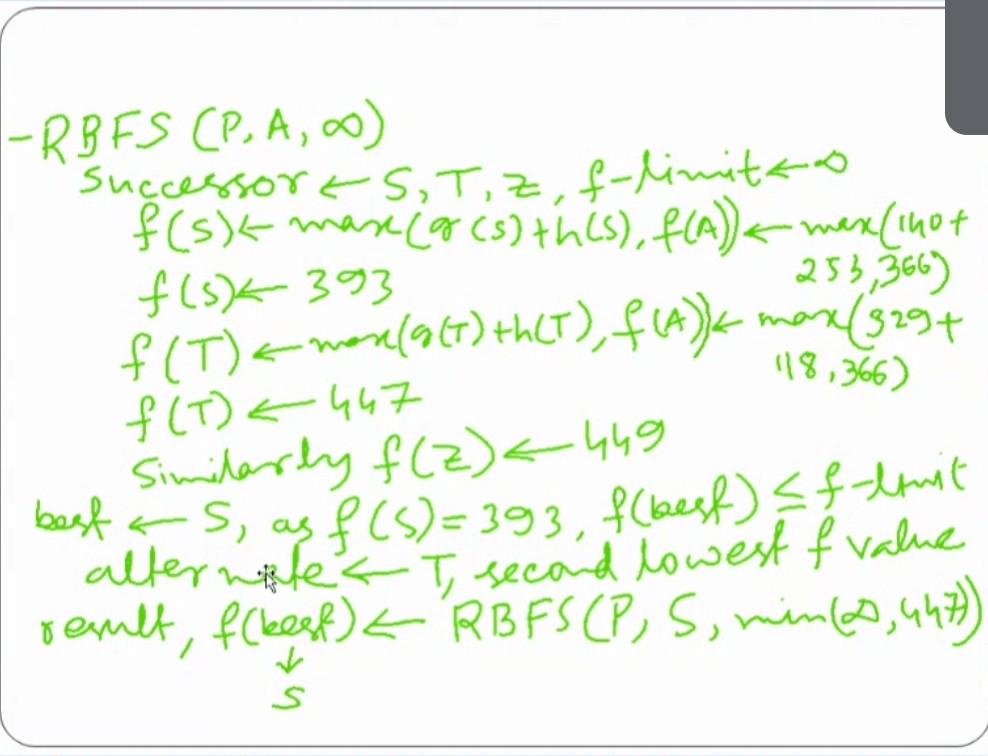 - RBFS (P, A, ∞)
Successor ← S, T, Z, f-limit ← ∞
f(S) ← max(g(S)+h(S), f(A)) ← max(140+
253, 366)
f(S) ← 393
f(T) ← max(g(T)+h(T), f(A)) ← max(329+
118, 366)
f(T) ← 447
Similarly f(Z) ← 449
best ← S, as f(S) = 393, f(best) ≤ f-limit
alternate ← T, second lowest f value
result, f(best) ← RBFS(P, S, min(∞, 447))
↓
S